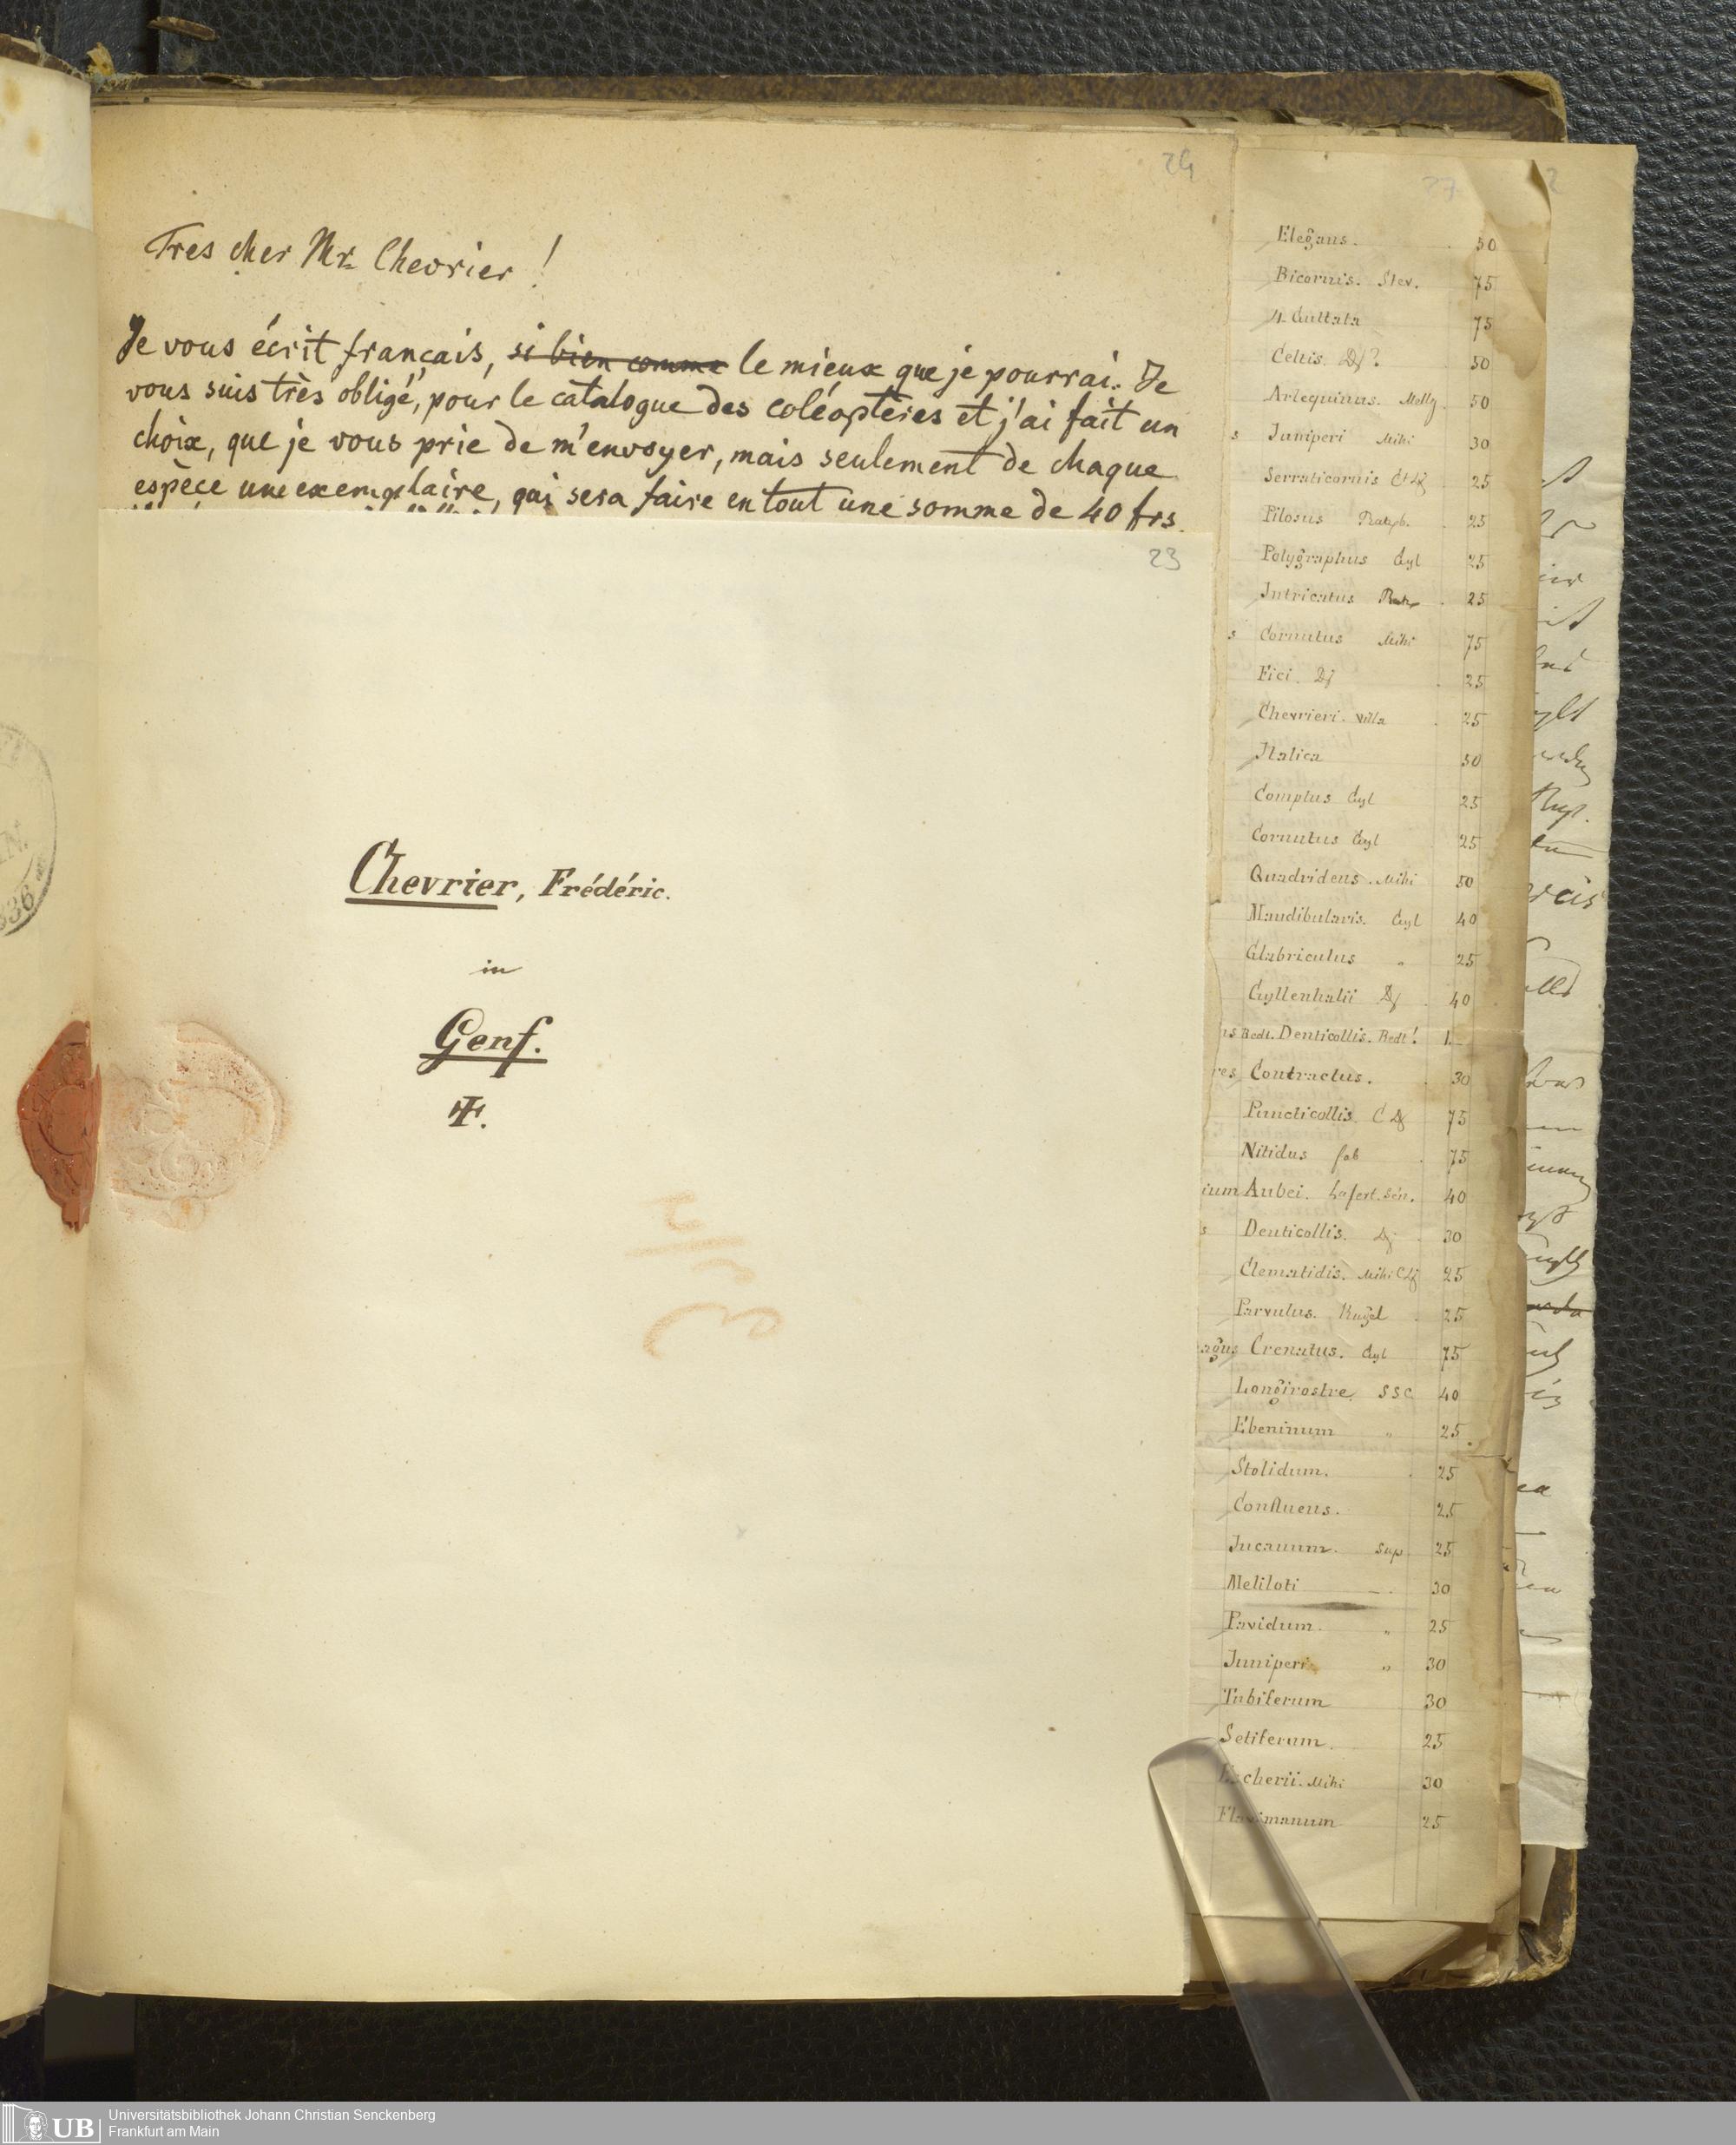 24
Tres cher Mr. Chevrier!
Je vous écrit français, si bien comme le mieux que je pourrai. Je
vous suis très obligé, pour le catalogue des coléoptères et j'ai fait un
choix, que je vous prie de m'envoyer, mais seulement de chaque
espèce une exemplaire, qui sera faire en tout une somme de 40 frs.
23
Chevrier, Frédéric.
in
Genf.
27
Elegans. 50
Bicornis. Stev. 75
4 Guttata 75
Celtis. Dj? 50
Arlequinus. Melly. 50
s Juniperi Mihi 30
Serraticornis 25
Pilosus Ratzb. 25
Polygraphus Gyl 25
Intricatus Ratz 25
s Cornutus Mihi 75
Fici. Dj 25
Chevrieri. Villa 25
Italica 50
Comptus Gyl 25
Cornutus Gyl 25
Quadridens. Mihi 50
Mandibularis. Gyl 40
Glabriculus " 25
Gyllenhalii Dj 40
ns Redt. Denticollis. Redt! 1._
res Contractus. 30
Puncticollis. C Dj 75
Nitidus fab 75
ium Aubei. Lafert. Sén. 40
s Denticollis. Dj 30
Clematidis. Mihi C Dj 25
Parvulus. Kugel 25
agus Crenatus. Gyl 75
Longirostre SSC 40
Ebeninum " 25
Stolidum. 25
Confluens. 25
Incanum. Sup 25
Meliloti — 30
Pavidum. " 25
Juniperi " 30
Tubiferum 30
Setiferum. 25
Escherii. Mihi 30
Flavimanum 25
UB
Universitätsbibliothek Johann Christian Senckenberg
Frankfurt am Main